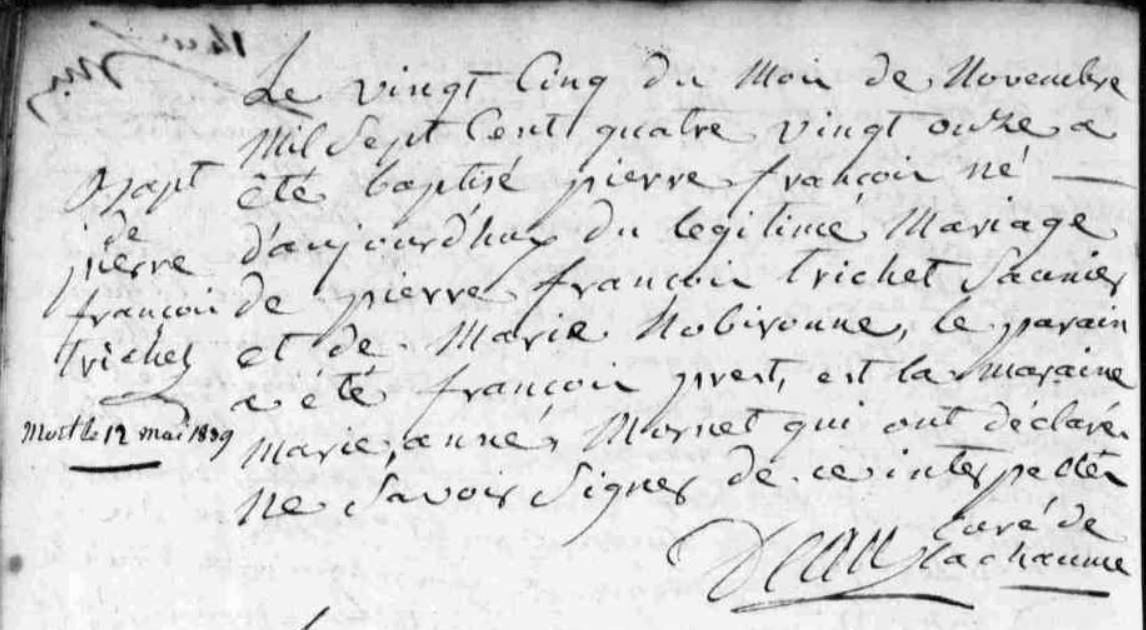 Le vingt Cinq du Mois de Novembre
Mil Sept Cent quatre vingt onze a
été baptisé pierre françois né
d'aujourd'huy du legitime Mariage
de pierre françois trichet Saunier
et de Marie Nobironne, le parain
a été françois prest, et la maraine
marie, anne, Mornet qui ont déclaré
ne Savoir Signer de ce interpellés
Curé de
la chaume
Bapt
de
pierre
françois
trichet
Mort le 12 mai 1839